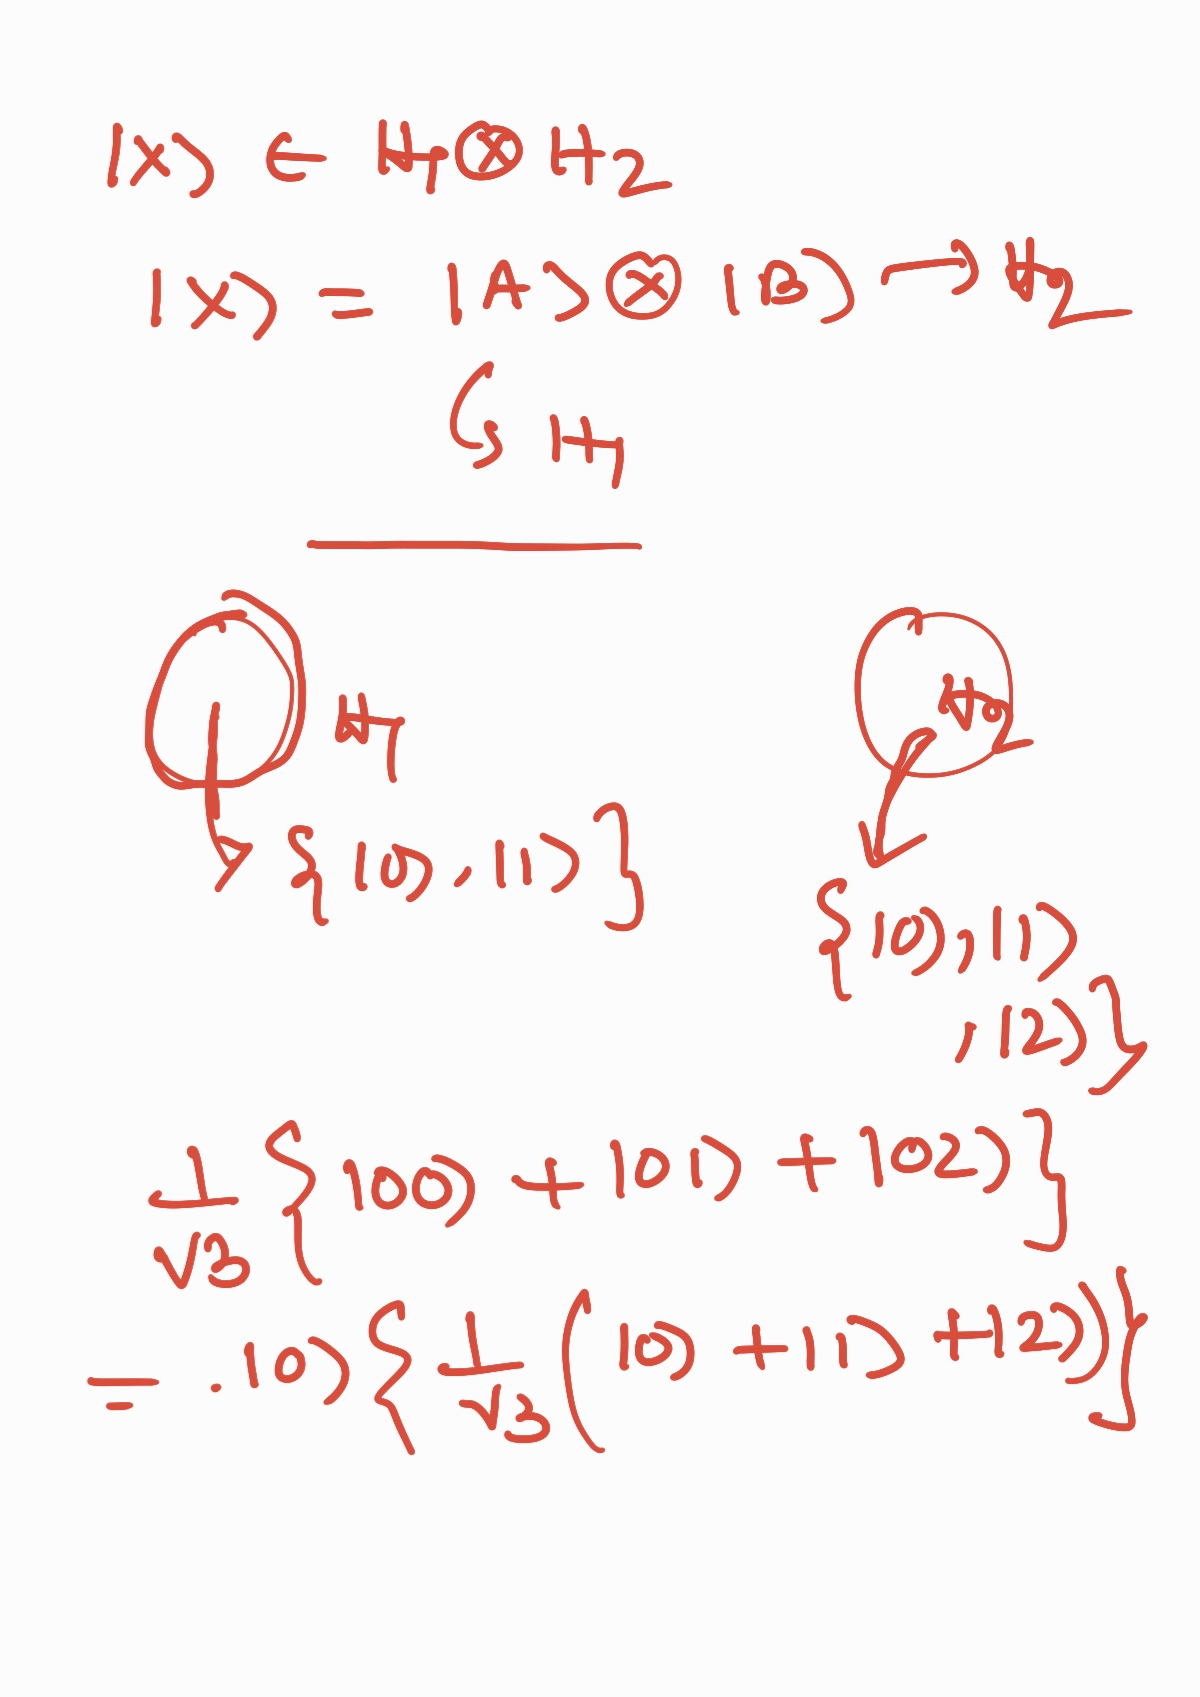 |X⟩ ∈ H₁ ⊗ H₂
|X⟩ = |A⟩ ⊗ |B⟩ → H₂
↳ H₁
H₁
H₂
{|0⟩, |1⟩}
{|0⟩, |1⟩
, |2⟩}
1/√3 {|00⟩ + |01⟩ + |02⟩}
= . |0⟩ {1/√3 (|0⟩ + |1⟩ + |2⟩)}